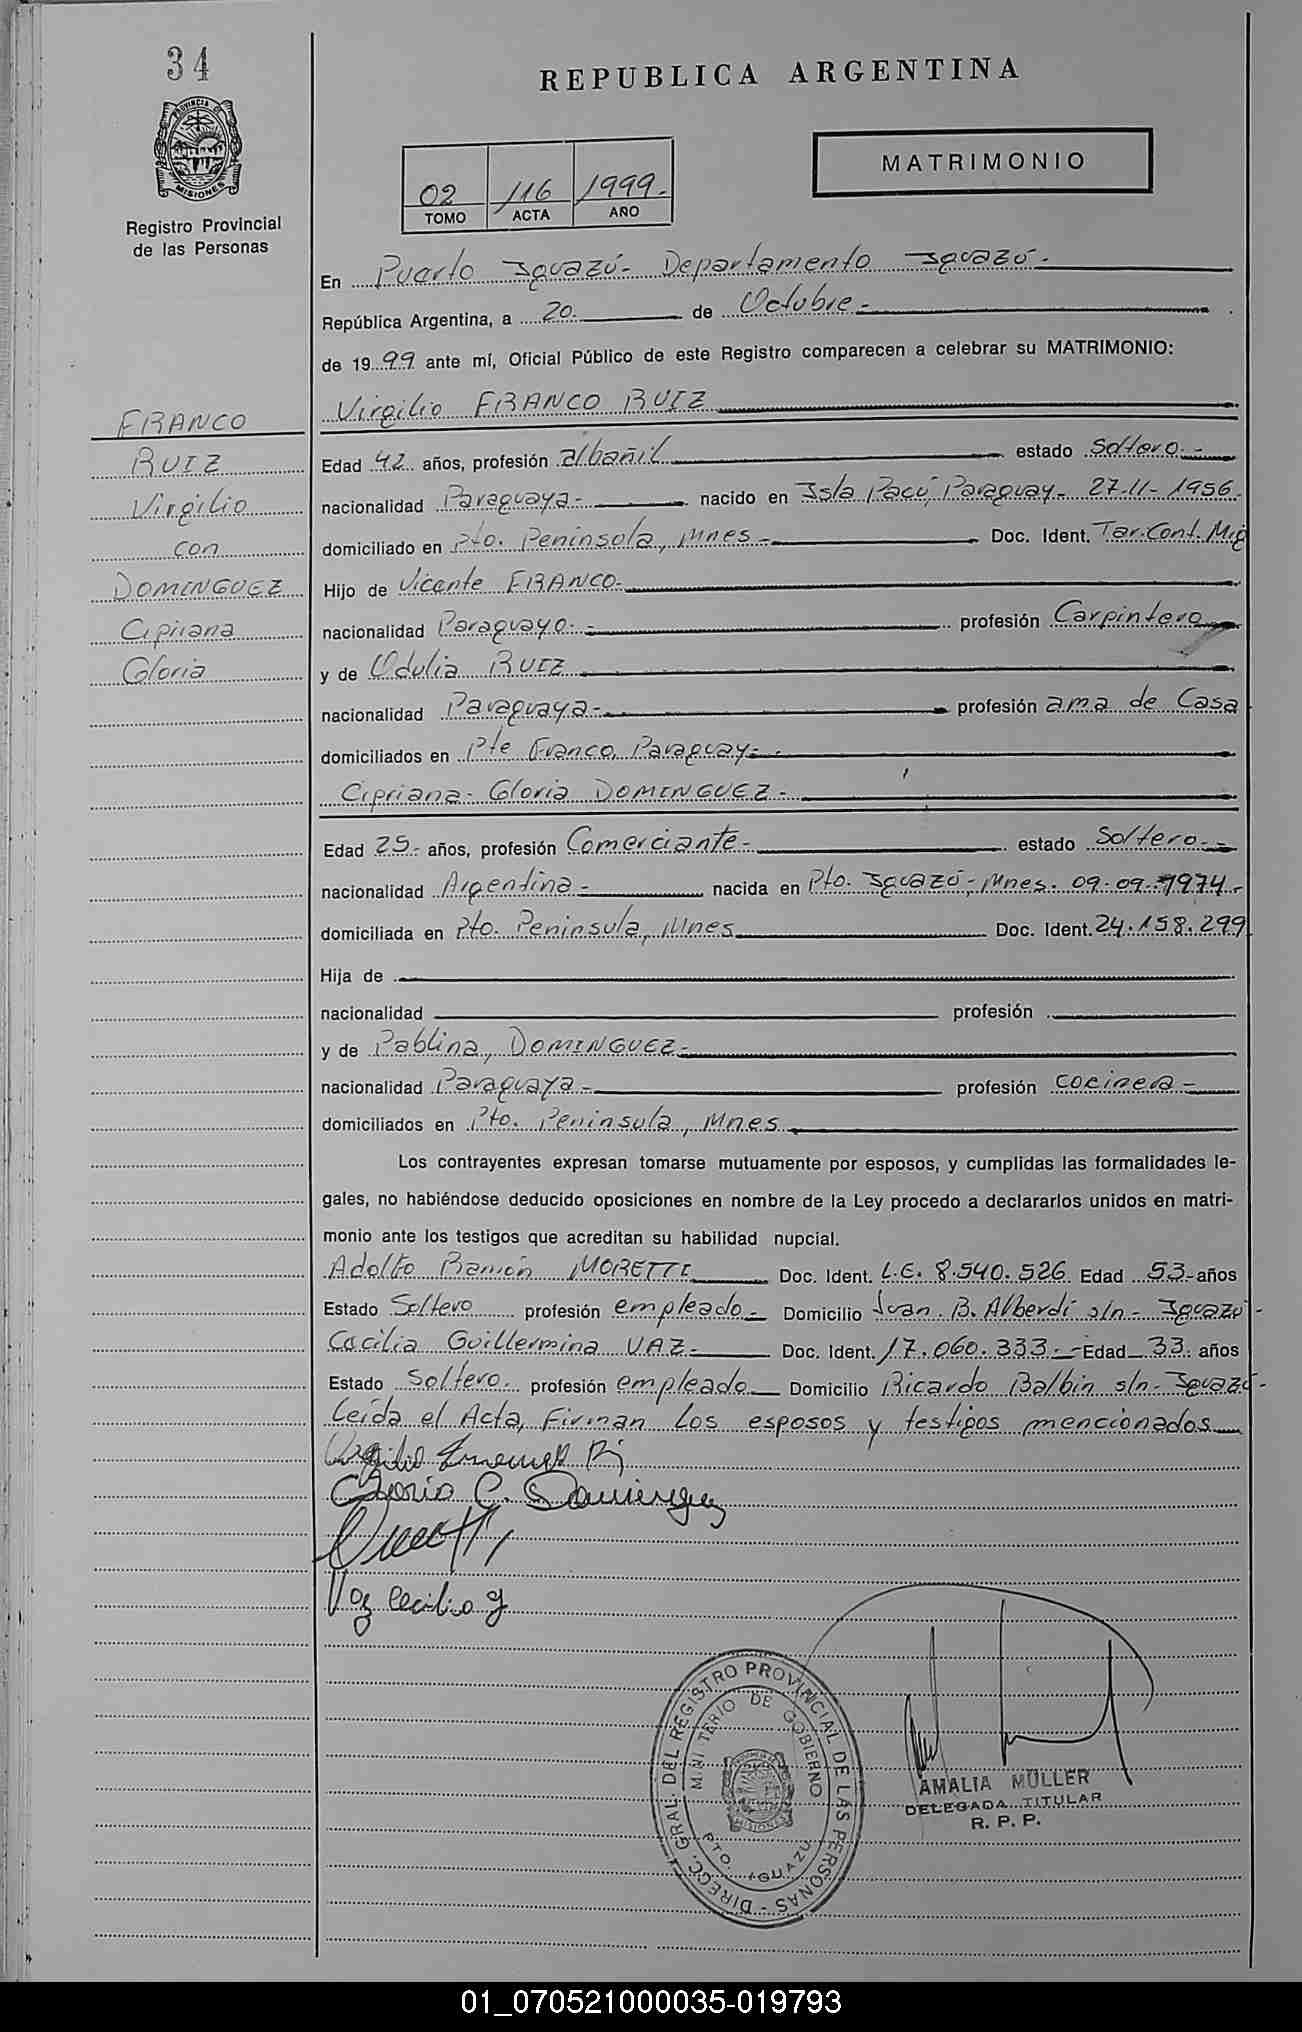 34
REPUBLICA ARGENTINA
PROVINCIA DE
MISIONES
Registro Provincial
de las Personas
MATRIMONIO
02 116 1999.
TOMO ACTA AÑO
En Puerto Iguazú- Departamento Iguazú-
República Argentina, a 20. de Octubre-
de 1999 ante mí, Oficial Público de este Registro comparecen a celebrar su MATRIMONIO:
Virgilio FRANCO RUIZ
FRANCO
RUIZ
Virgilio
con
DOMINGUEZ
Cipriana
Gloria
Edad 42 años, profesión albañil estado Soltero-
nacionalidad Paraguaya- nacido en Isla Pacú, Paraguay- 27-11-1956-
domiciliado en Pto. Peninsula, Mnes- Doc. Ident. Tar. Cont. Mig
Hijo de Vicente FRANCO-
nacionalidad Paraguayo- profesión Carpintero
y de Odulia RUIZ
nacionalidad Paraguaya- profesión ama de Casa
domiciliados en Pte Franco, Paraguay-
Cipriana- Gloria DOMINGUEZ-
Edad 25- años, profesión Comerciante- estado Soltero-
nacionalidad Argentina- nacida en Pto. Iguazú-, Mnes. 09-09-1974-
domiciliada en Pto. Peninsula, Mnes Doc. Ident. 24.158.299
Hija de
nacionalidad profesión
y de Pablina, DOMINGUEZ-
nacionalidad Paraguaya- profesión cocinera-
domiciliados en Pto. Peninsula, Mnes
Los contrayentes expresan tomarse mutuamente por esposos, y cumplidas las formalidades le-
gales, no habiéndose deducido oposiciones en nombre de la Ley procedo a declararlos unidos en matri-
monio ante los testigos que acreditan su habilidad nupcial.
Adolfo Ramón MORETTI Doc. Ident. L.E. 8.540.526 Edad 53- años
Estado Soltero profesión empleado- Domicilio Juan B. Alberdi s/n- Iguazú-
Cacilia Guillermina VAZ- Doc. Ident. 17.060.333.- Edad 33. años
Estado Soltero. profesión empleado Domicilio Ricardo Balbin s/n- Iguazú-
Leída el Acta, Firman los esposos y testigos mencionados
Virgilio
Gloria C. Dominguez
Vaz Cecilia G
DIRECC. GRAL. DEL REGISTRO PROVINCIAL DE LAS PERSONAS -
MINISTERIO DE GOBIERNO
PTO. IGUAZU
MISIONES
AMALIA MULLER
DELEGADA TITULAR
R. P. P.
01_070521000035-019793